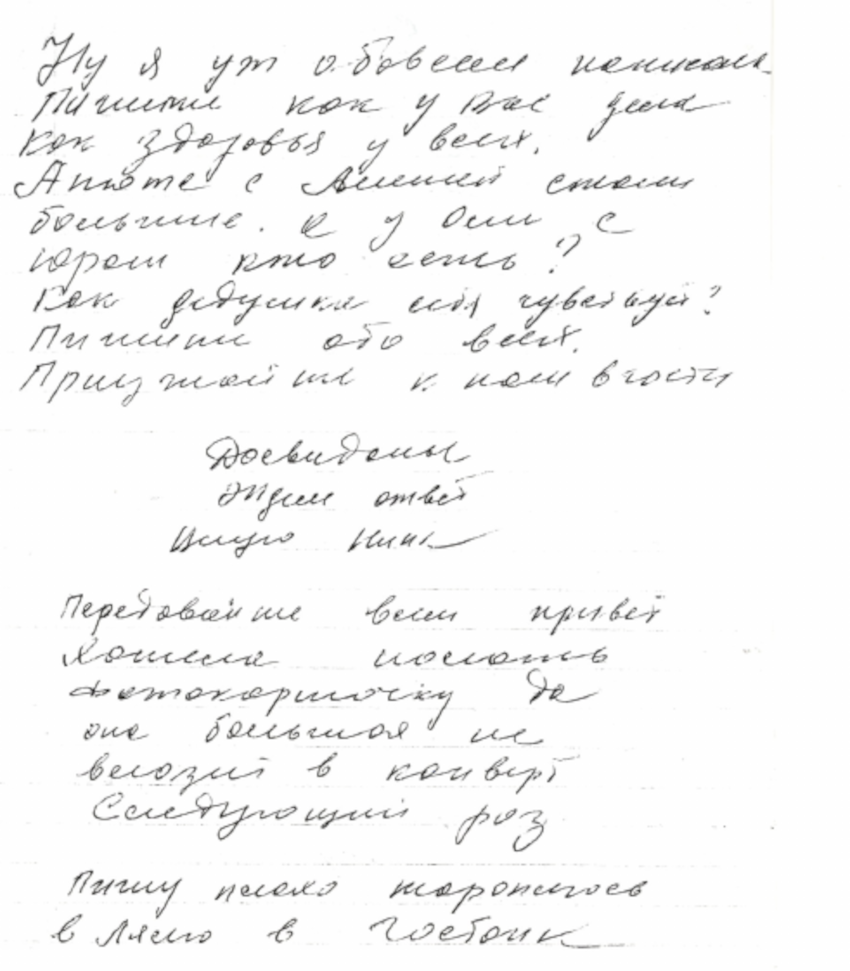 Ну я ут обо всем написала
Пишите как у Вас дела
Как здоровья у всех.
Анюте с Аленой стали
больше. А у Оли с
Юрой кто есть?
Как дедушка себя чувствует?
Пишите обо всех.
Приезжайте к нам в гости
Досвиданья
Ждем ответ
Целую Нина
Передавайте всем привет
Хотела послать
фотокарточку да
она большая не
влазит в конверт
Следующий раз
Пишу плохо тороплюсь
в